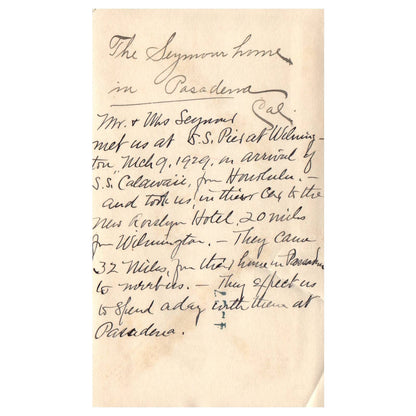 The Seymour home
in Pasadena
Cal.
Mr. & Mrs Seymour
met us at S.S. Pier at Wilming-
ton, Mch 9, 1929, on arrival of
S.S. Calawaii, from Honolulu. -
and took us, in their Car, to the
New Rosslyn Hotel, 20 miles
from Wilmington. - They came
32 Miles, from their home in Pasadena
to meet us. - They expect us
to spend a day with them at
Pasadena.